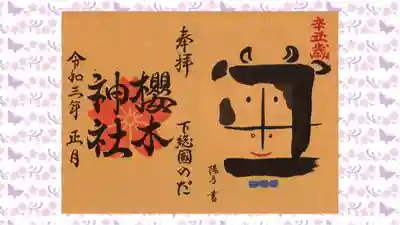 辛丑歳
丑
奉拝
下総國のだ
櫻木
神社
令和三年 正月